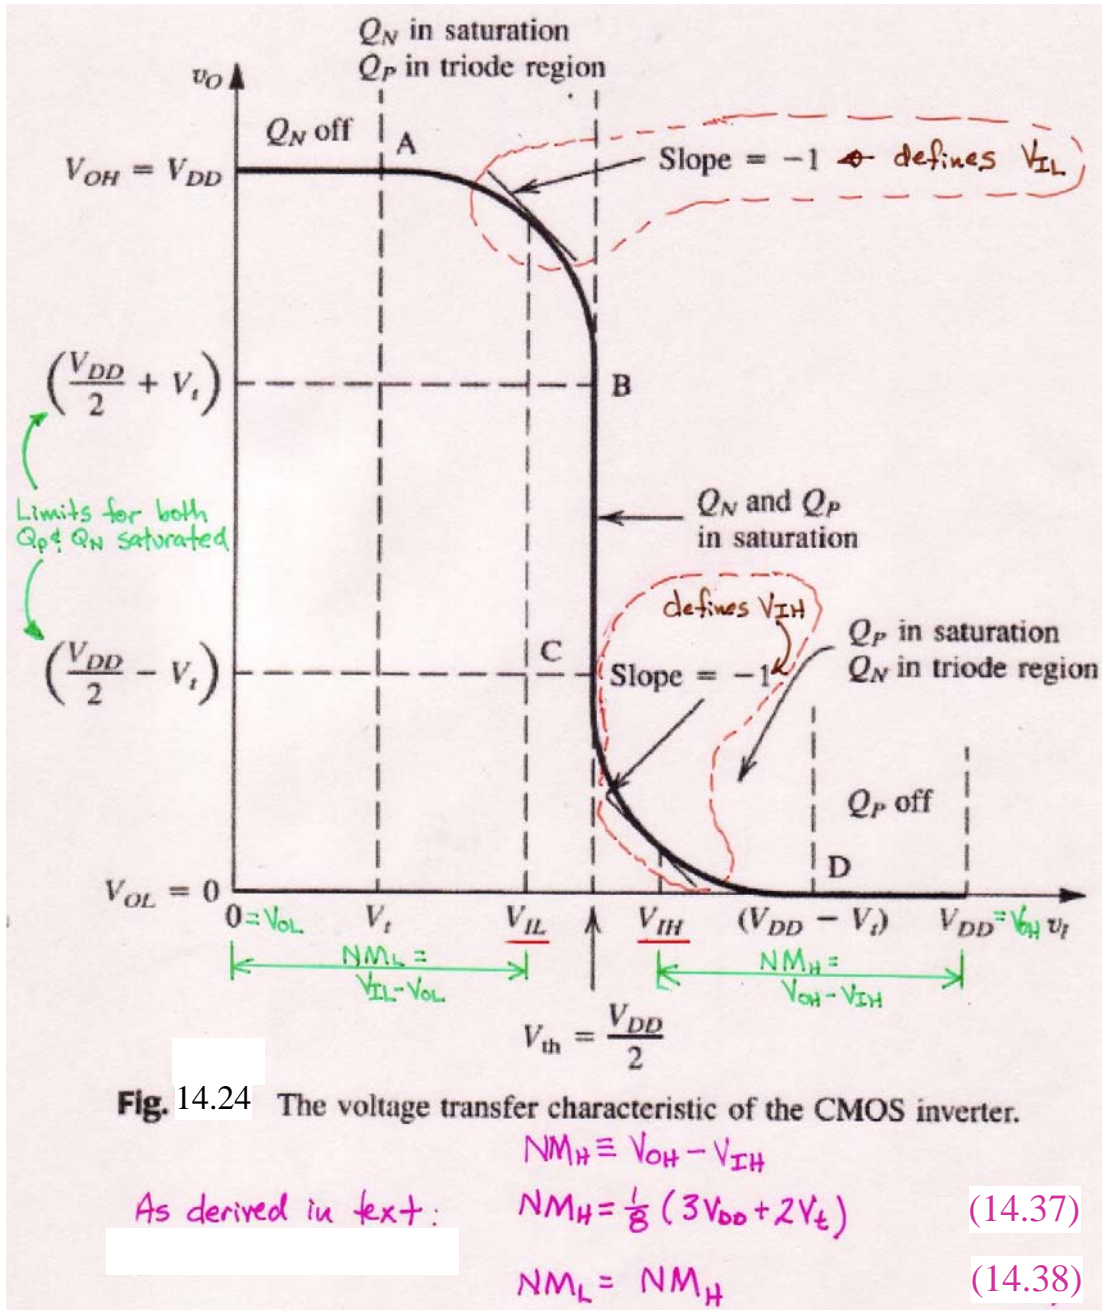 Q_N in saturation
Q_P in triode region
v_O
Q_N off
A
Slope = −1 ← defines V_IL
V_OH = V_DD
(V_DD/2 + V_t)
B
Limits for both
Q_P & Q_N saturated
Q_N and Q_P
in saturation
defines V_IH
Q_P in saturation
Q_N in triode region
(V_DD/2 − V_t)
C
Slope = −1
Q_P off
D
V_OL = 0
0 = V_OL V_t V_IL V_IH (V_DD − V_t) V_DD = V_OH v_I
NM_L =
V_IL - V_OL
NM_H =
V_OH - V_IH
V_th = V_DD/2
Fig. 14.24 The voltage transfer characteristic of the CMOS inverter.
NM_H ≡ V_OH - V_IH
As derived in text: NM_H = 1/8 (3V_DD + 2V_t) (14.37)
NM_L = NM_H (14.38)